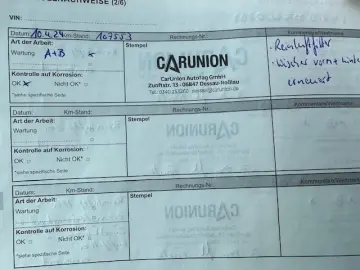 (2/6)
VIN:
Datum: 10.4.24 Km-Stand: 107553 Rechnungs-Nr.
Art der Arbeit:
Wartung A+B x
Kontrolle auf Korrosion:
OK x Nicht OK* □
*siehe spezifische Seite
Stempel
CARUNION
CarUnion AutoTag GmbH
Zunftstr. 13 · 06847 Dessau-Roßlau
erneuert
Datum: Km-Stand: Rechnungs-Nr.
Art der Arbeit:
Wartung □
□
Kontrolle auf Korrosion:
OK □ Nicht OK* □
*siehe spezifische Seite
Stempel
Datum: Km-Stand: Rechnungs-Nr.
Art der Arbeit:
Wartung □
□
Kontrolle auf Korrosion:
OK □ Nicht OK* □
*siehe spezifische Seite
Stempel